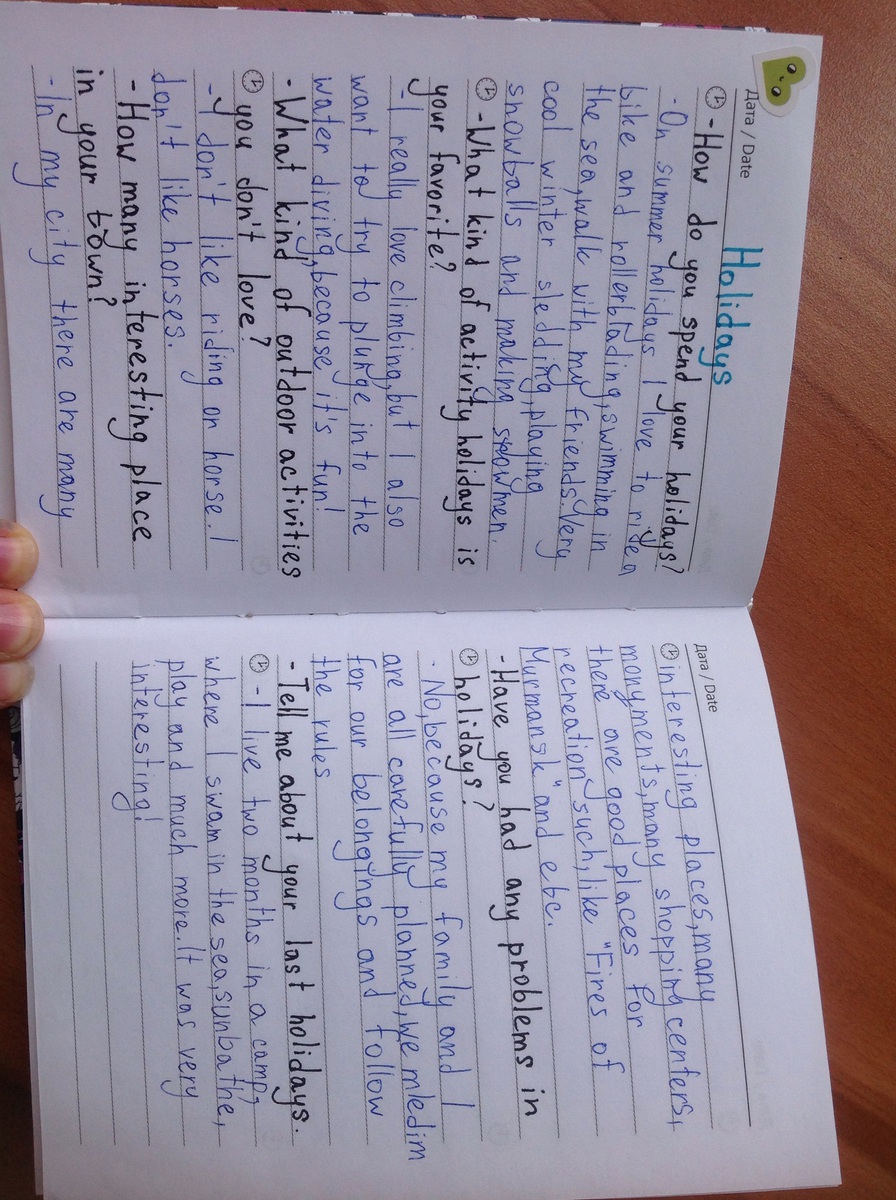 Дата / Date
Holidays
- How do you spend your holidays?
- On summer holidays I love to ride a
bike and rollerblading, swimming in
the sea, walk with my friends. Very
cool winter sledding, playing
snowballs and making snowmen.
- What kind of activity holidays is
your favorite?
- I really love climbing, but I also
want to try to plunge into the
water diving, because it's fun!
- What kind of outdoor activities
you don't love?
- I don't like riding on horse. I
don't like horses.
- How many interesting place
in your town?
- In my city there are many
Дата / Date
interesting places, many
monyments, many shopping centers,
there are good places for
recreation such, like "Fires of
Murmansk" and etc.
- Have you had any problems in
holidays?
- No, because my family and I
are all carefully planned, we
for our belongings and follow
the rules
- Tell me about your last holidays.
- I live two months in a camp,
where I swam in the sea, sunbathe,
play and much more. It was very
interesting!